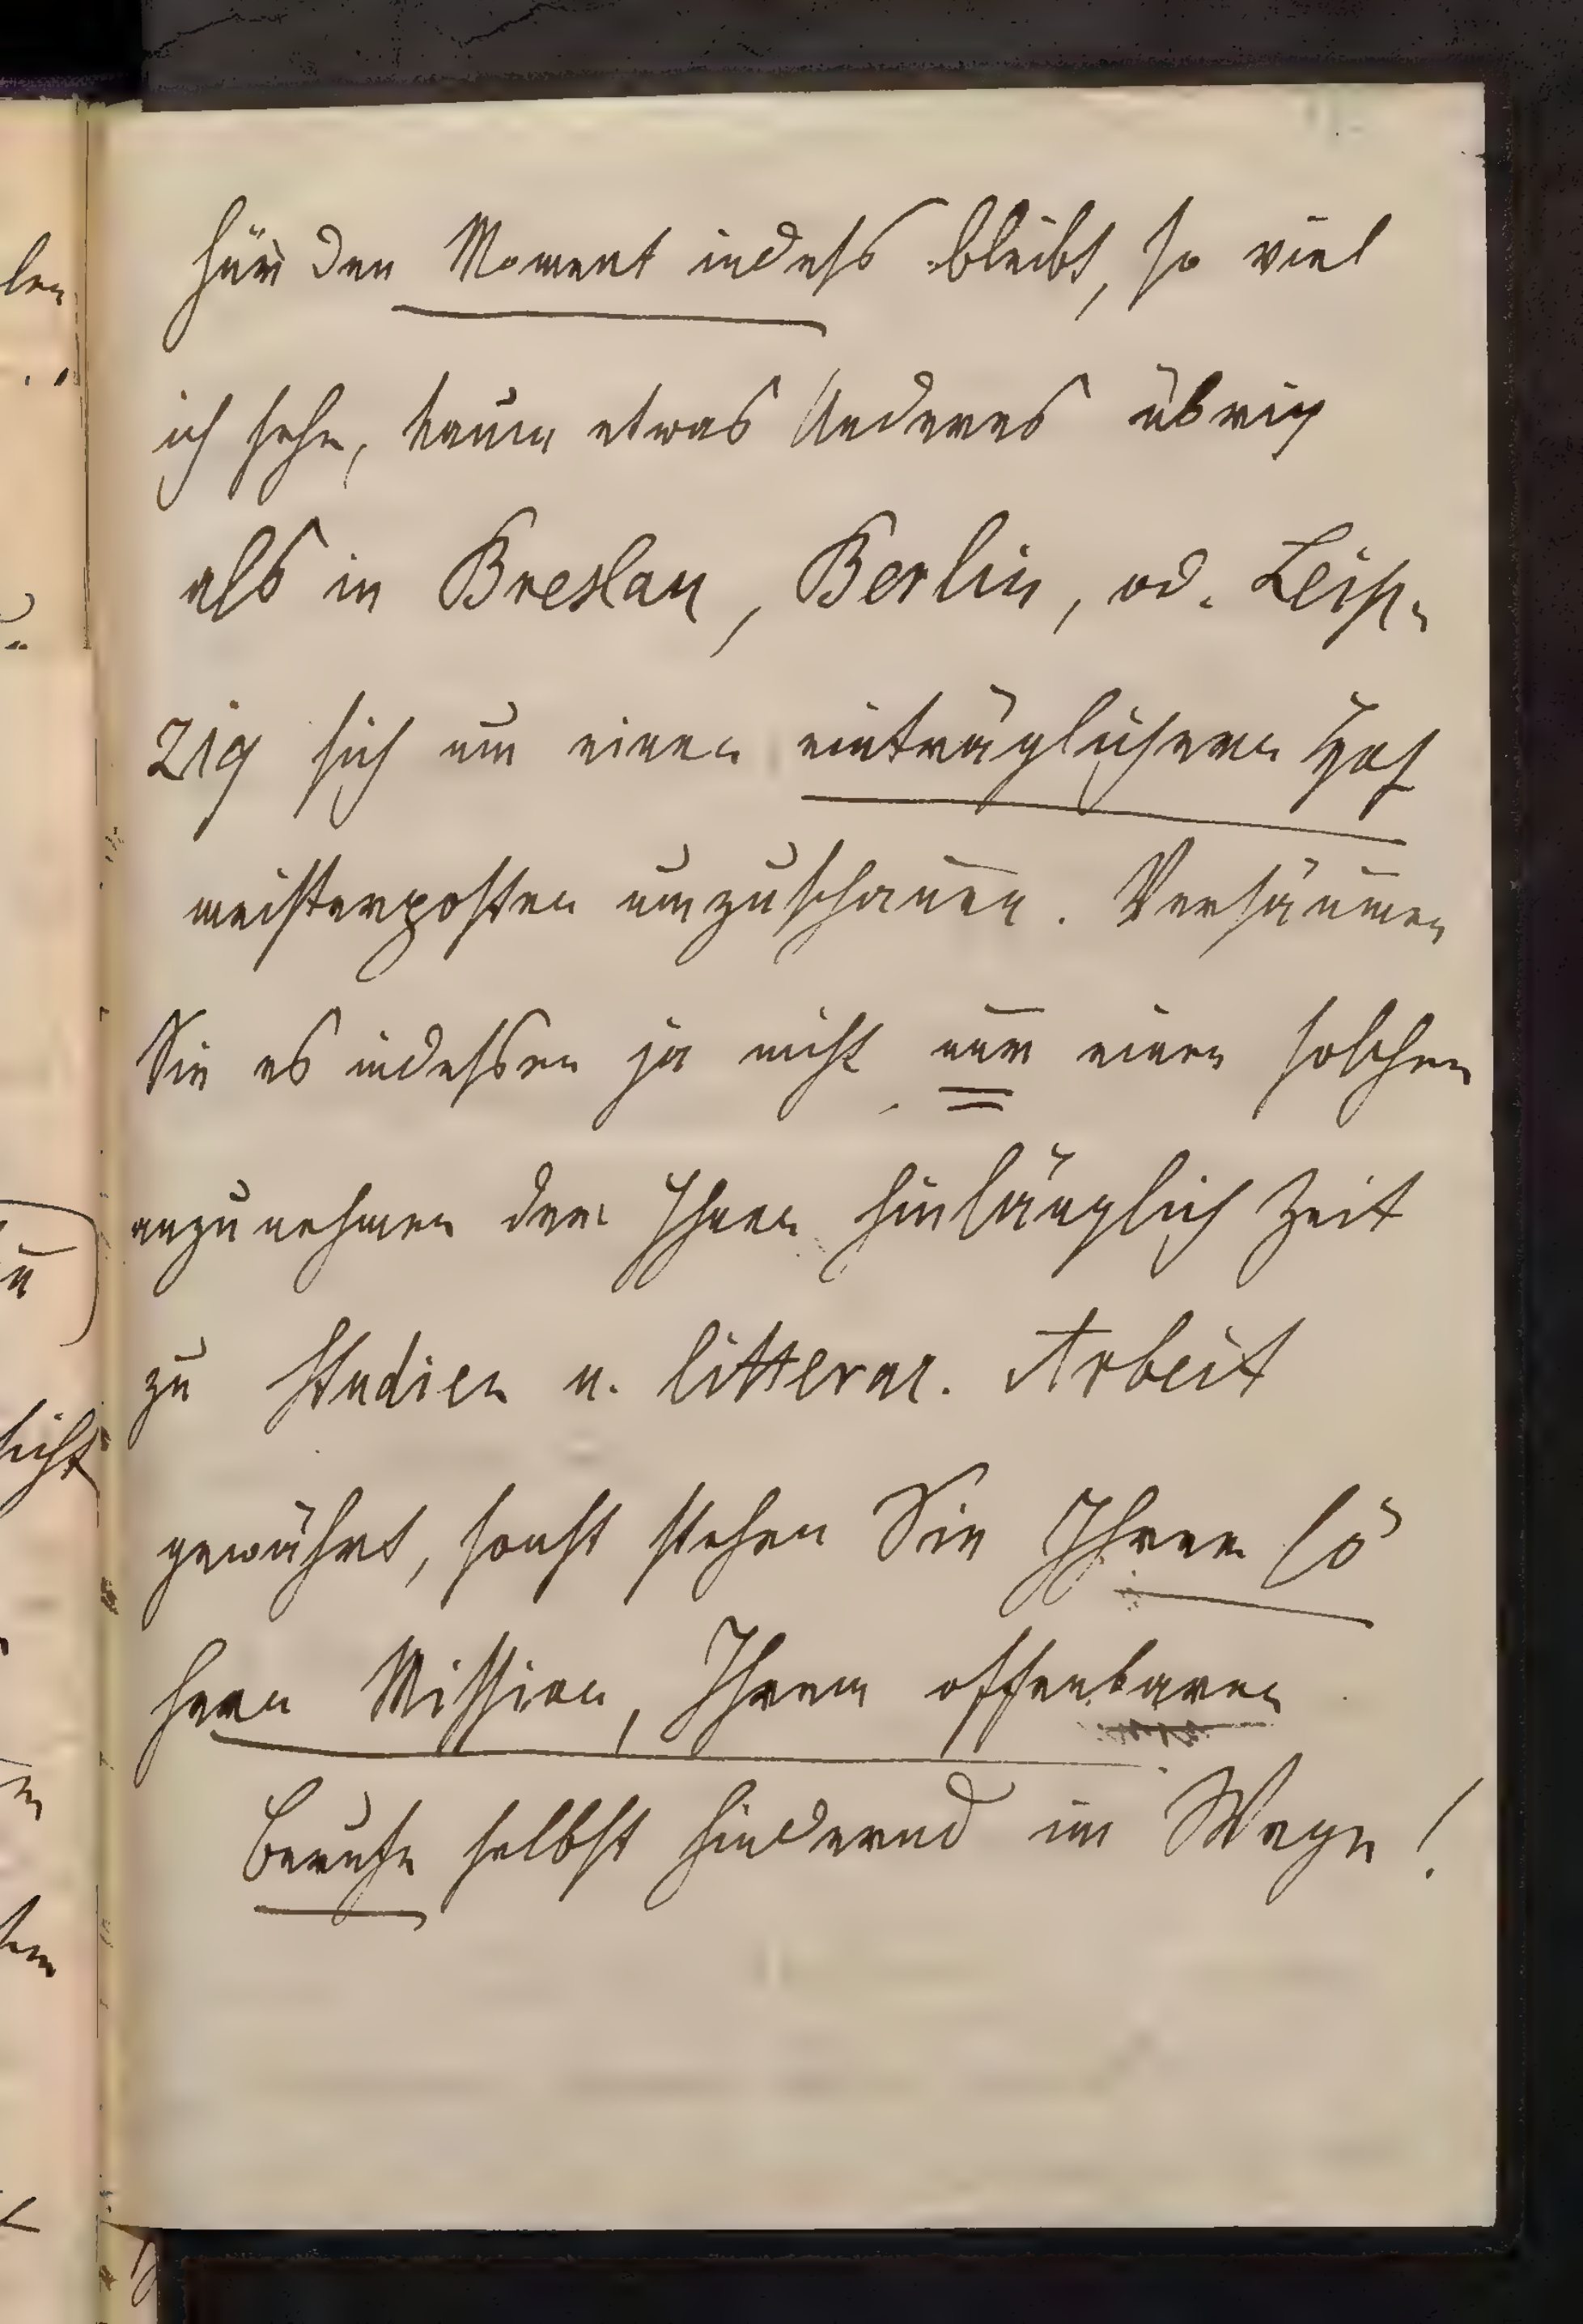 für den Moment indeß bleibt, so viel
ich sehe, kaum etwas Anderes übrig
als in Breslau, Berlin, od. Leip-
zig sich um einen einträglichern Hof
meisterposten umzuschauen. Versäumen
Sie es indeßen ja nicht nur einen solchen
anzunehmen der Ihnen hinlänglich Zeit
zu Studien u. litterar. Arbeit
gewährt, sonst stehen Sie Ihrer hö
hern Mission, Ihrem offenbaren
Berufe selbst hindernd im Wege!